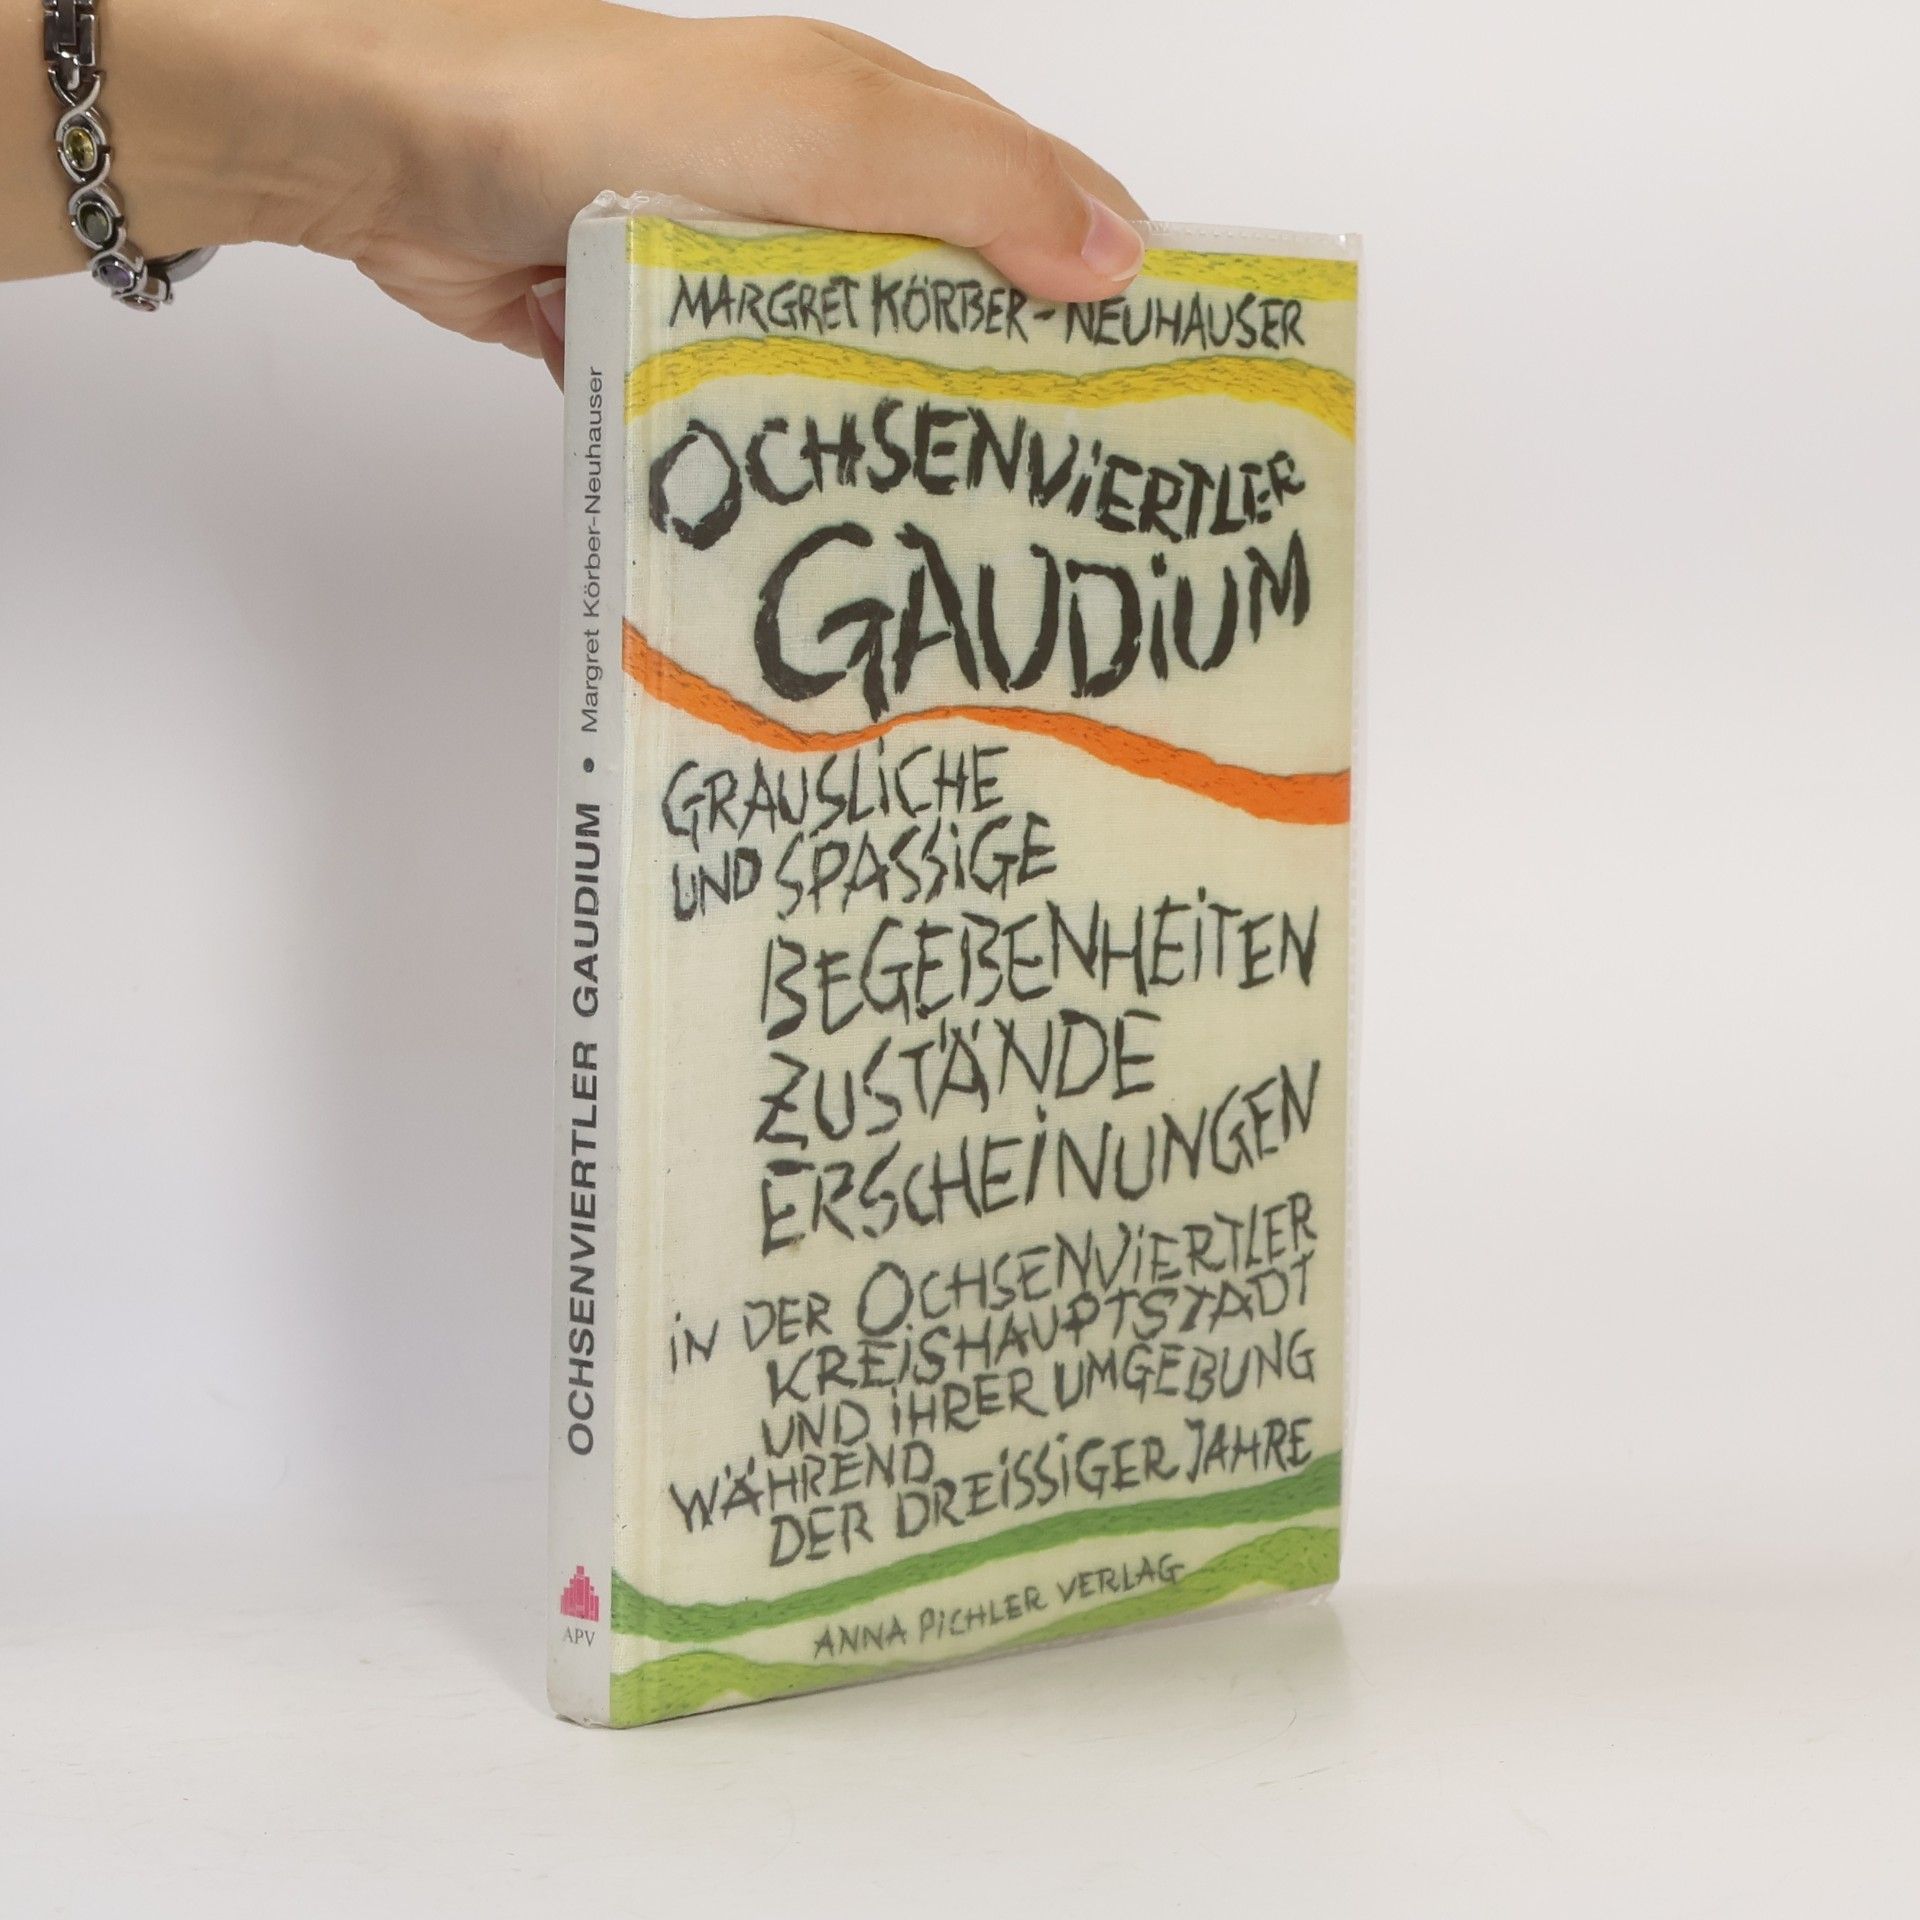 MARGRET KÖRBER-NEUHAUSER
OCHSENVIERTLER
GAUDIUM
GRAUSLICHE
UND SPASSIGE
BEGEBENHEITEN
ZUSTÄNDE
ERSCHEINUNGEN
IN DER OCHSENVIERTLER
KREISHAUPTSTADT
UND IHRER UMGEBUNG
WÄHREND
DER DREISSIGER JAHRE
ANNA PICHLER VERLAG
OCHSENVIERTLER GAUDIUM • Margret Körber-Neuhauser
APV